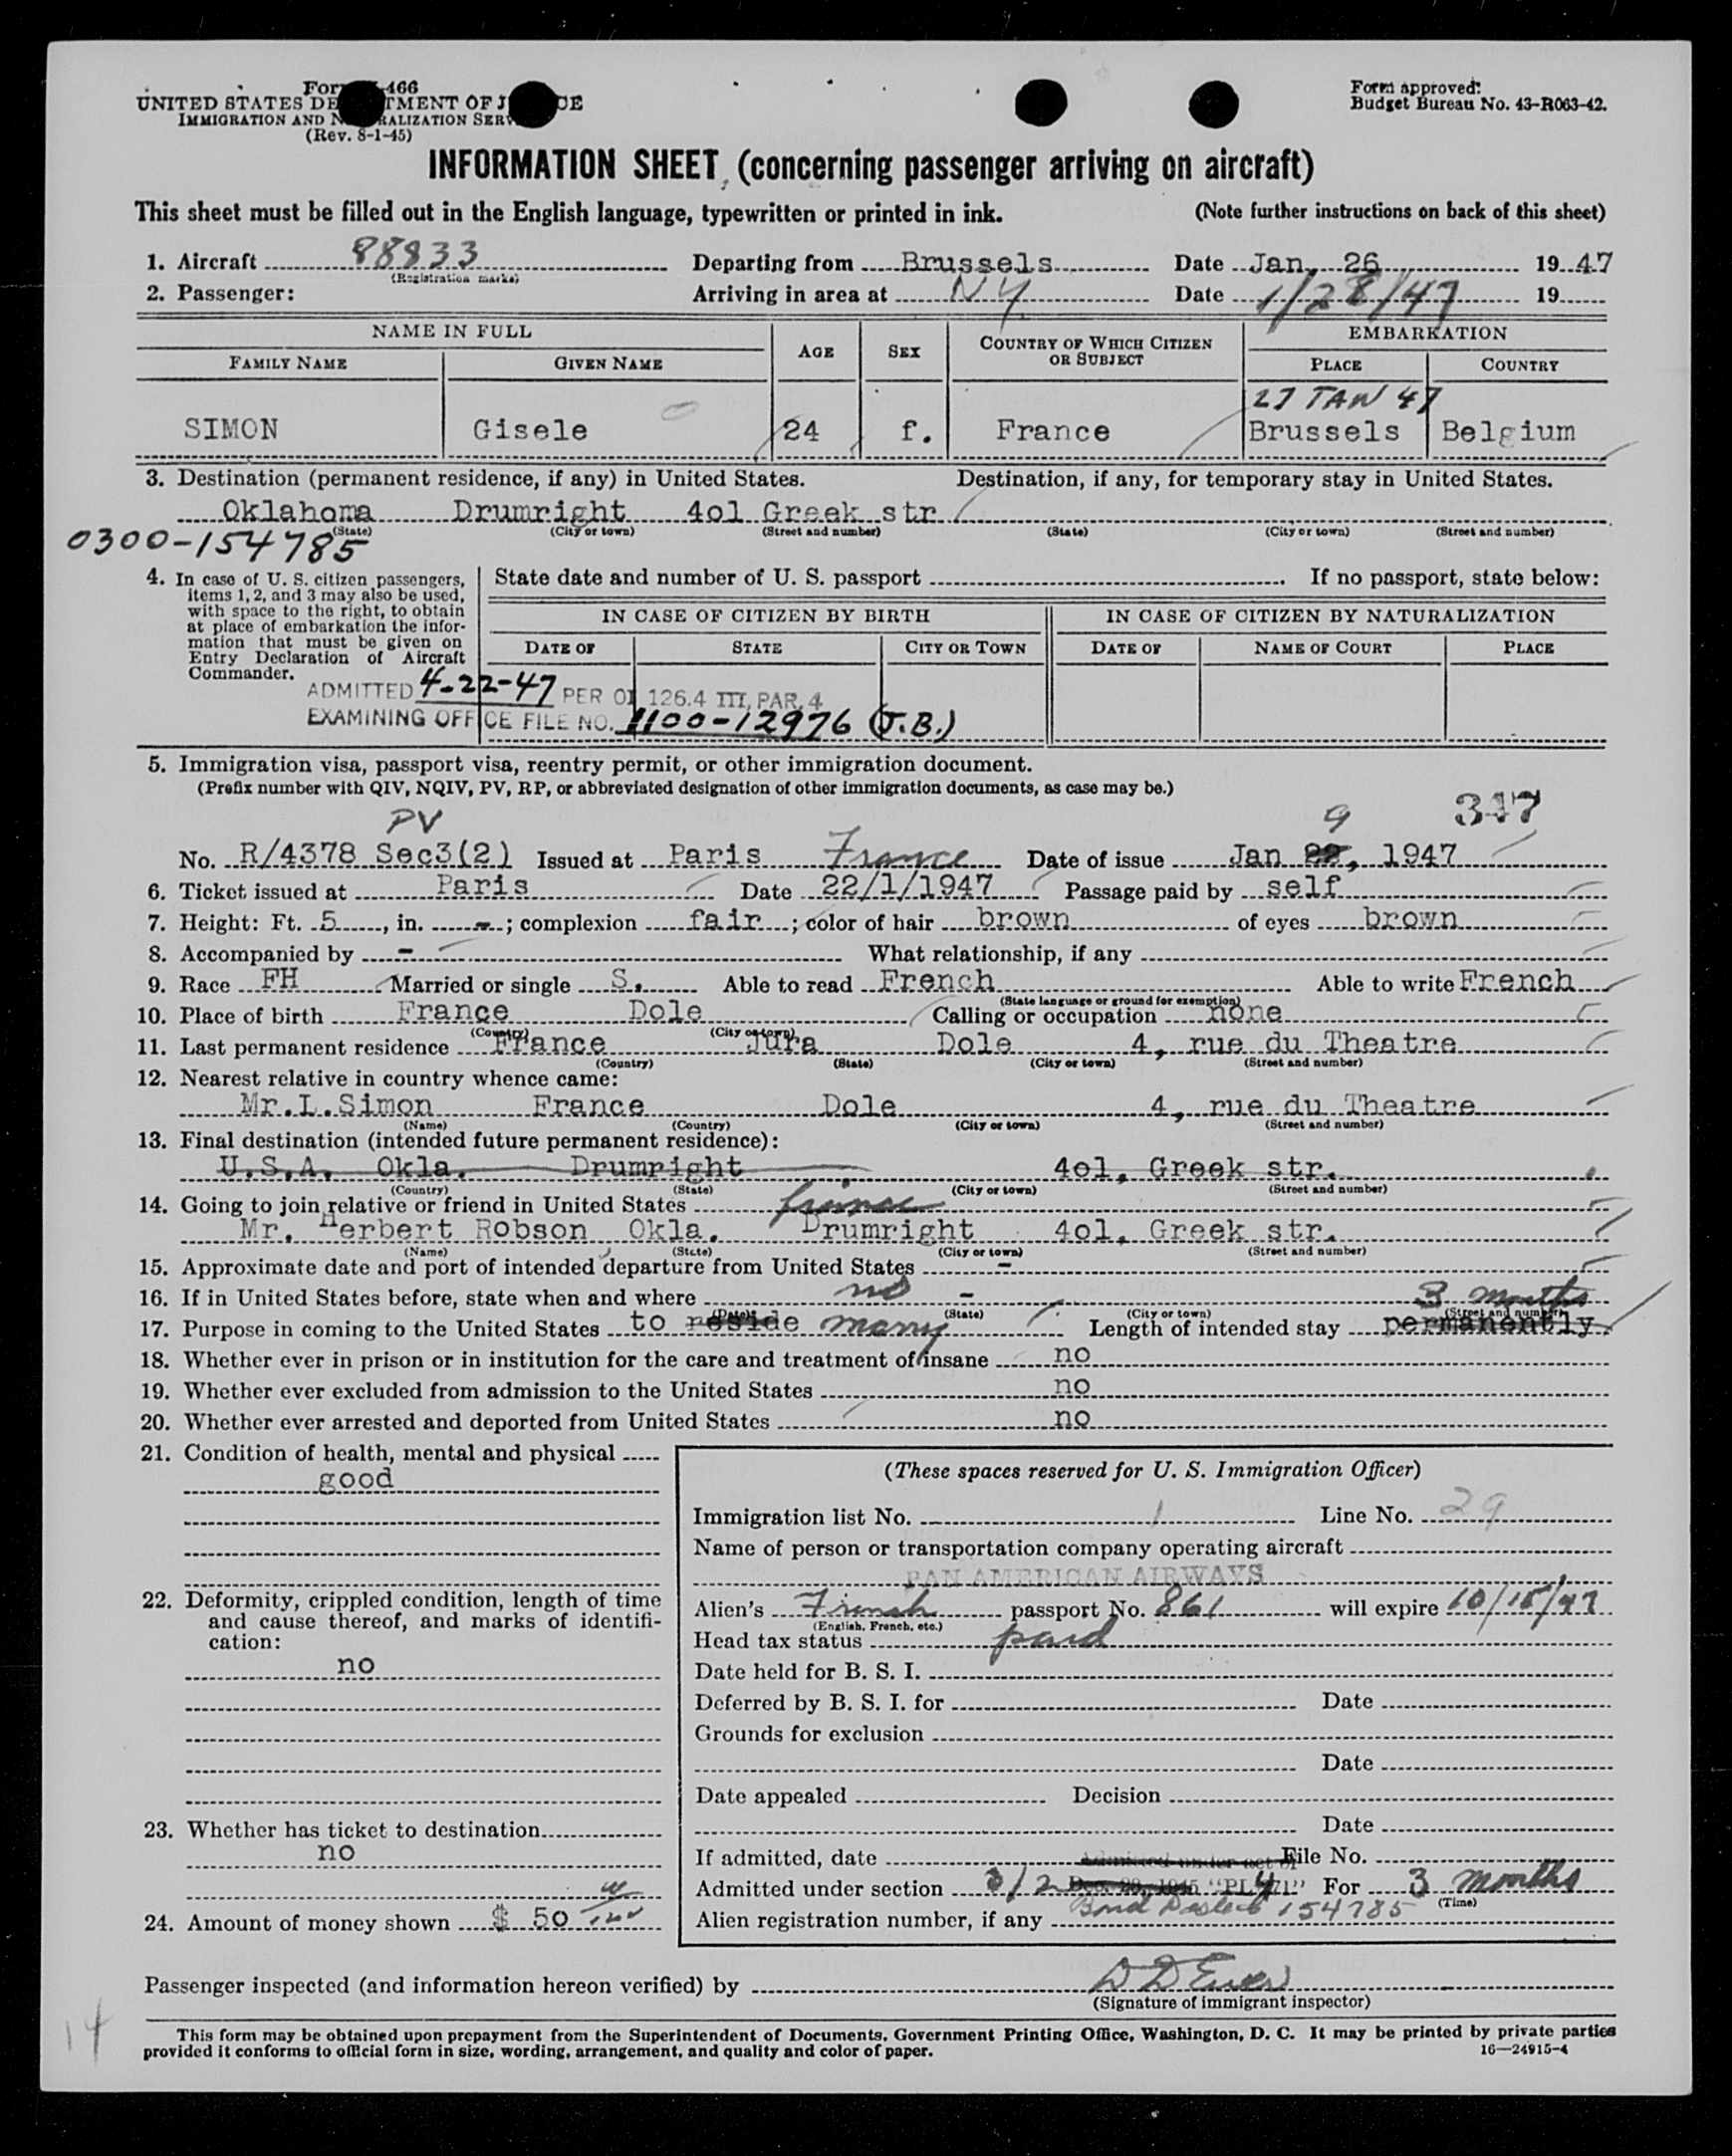 Form I-466
UNITED STATES DEPARTMENT OF JUSTICE
IMMIGRATION AND NATURALIZATION SERVICE
(Rev. 8-1-45)
Form approved:
Budget Bureau No. 43-R063-42.
INFORMATION SHEET (concerning passenger arriving on aircraft)
This sheet must be filled out in the English language, typewritten or printed in ink. (Note further instructions on back of this sheet)
1. Aircraft 88833 Departing from Brussels Date Jan, 26 19 47
(Registration marks)
2. Passenger: Arriving in area at NY Date 1/28/47 19
NAME IN FULL AGE SEX COUNTRY OF WHICH CITIZEN OR SUBJECT EMBARKATION
FAMILY NAME GIVEN NAME PLACE COUNTRY
27 JAN 47
SIMON Gisele 24 f. France Brussels Belgium
3. Destination (permanent residence, if any) in United States. Destination, if any, for temporary stay in United States.
Oklahoma Drumright 4o1 Greek str
(State) (City or town) (Street and number) (State) (City or town) (Street and number)
0300-154785
4. In case of U. S. citizen passengers, items 1, 2, and 3 may also be used, with space to the right, to obtain at place of embarkation the information that must be given on Entry Declaration of Aircraft Commander.
State date and number of U. S. passport . If no passport, state below:
IN CASE OF CITIZEN BY BIRTH IN CASE OF CITIZEN BY NATURALIZATION
DATE OF STATE CITY OR TOWN DATE OF NAME OF COURT PLACE
ADMITTED 4-22-47 PER OI 126.4 III, PAR. 4
EXAMINING OFFICE FILE NO. 1100-12976 (J.B.)
5. Immigration visa, passport visa, reentry permit, or other immigration document.
(Prefix number with QIV, NQIV, PV, RP, or abbreviated designation of other immigration documents, as case may be.)
347
PV 9
No. R/4378 Sec3(2) Issued at Paris France Date of issue Jan 22, 1947
6. Ticket issued at Paris Date 22/1/1947 Passage paid by self
7. Height: Ft. 5, in. -; complexion fair; color of hair brown of eyes brown
8. Accompanied by - What relationship, if any
9. Race FH Married or single S. Able to read French Able to write French
(State language or ground for exemption)
10. Place of birth France Dole Calling or occupation none
(Country) (City or town)
11. Last permanent residence France Jura Dole 4, rue du Theatre
(Country) (State) (City or town) (Street and number)
12. Nearest relative in country whence came:
Mr.L.Simon France Dole 4, rue du Theatre
(Name) (Country) (City or town) (Street and number)
13. Final destination (intended future permanent residence):
U.S.A. Okla. Drumright 4o1, Greek str.
(Country) (State) (City or town) (Street and number)
14. Going to join relative or friend in United States
Mr. Herbert Robson Okla. Drumright 4o1, Greek str.
(Name) (State) (City or town) (Street and number)
15. Approximate date and port of intended departure from United States -
16. If in United States before, state when and where no - 3 months
(Date) (State) (City or town) (Street and number)
17. Purpose in coming to the United States to reside marry Length of intended stay permanently.
18. Whether ever in prison or in institution for the care and treatment of insane no
19. Whether ever excluded from admission to the United States no
20. Whether ever arrested and deported from United States no
21. Condition of health, mental and physical
good
22. Deformity, crippled condition, length of time and cause thereof, and marks of identification:
no
23. Whether has ticket to destination
no
24. Amount of money shown $ 50
(These spaces reserved for U. S. Immigration Officer)
Immigration list No. 1 Line No. 29
Name of person or transportation company operating aircraft
PAN AMERICAN AIRWAYS
Alien's French passport No. 861 will expire 10/15/47
(English, French, etc.)
Head tax status paid
Date held for B. S. I.
Deferred by B. S. I. for Date
Grounds for exclusion
Date
Date appealed Decision
Date
If admitted, date Admitted under act of File No.
Admitted under section 3/2 Dec. 28, 1945 "PL 271" For 3 months
(Time)
Alien registration number, if any 154785
Passenger inspected (and information hereon verified) by
(Signature of immigrant inspector)
14
This form may be obtained upon prepayment from the Superintendent of Documents, Government Printing Office, Washington, D. C. It may be printed by private parties
provided it conforms to official form in size, wording, arrangement, and quality and color of paper. 16—24915-4